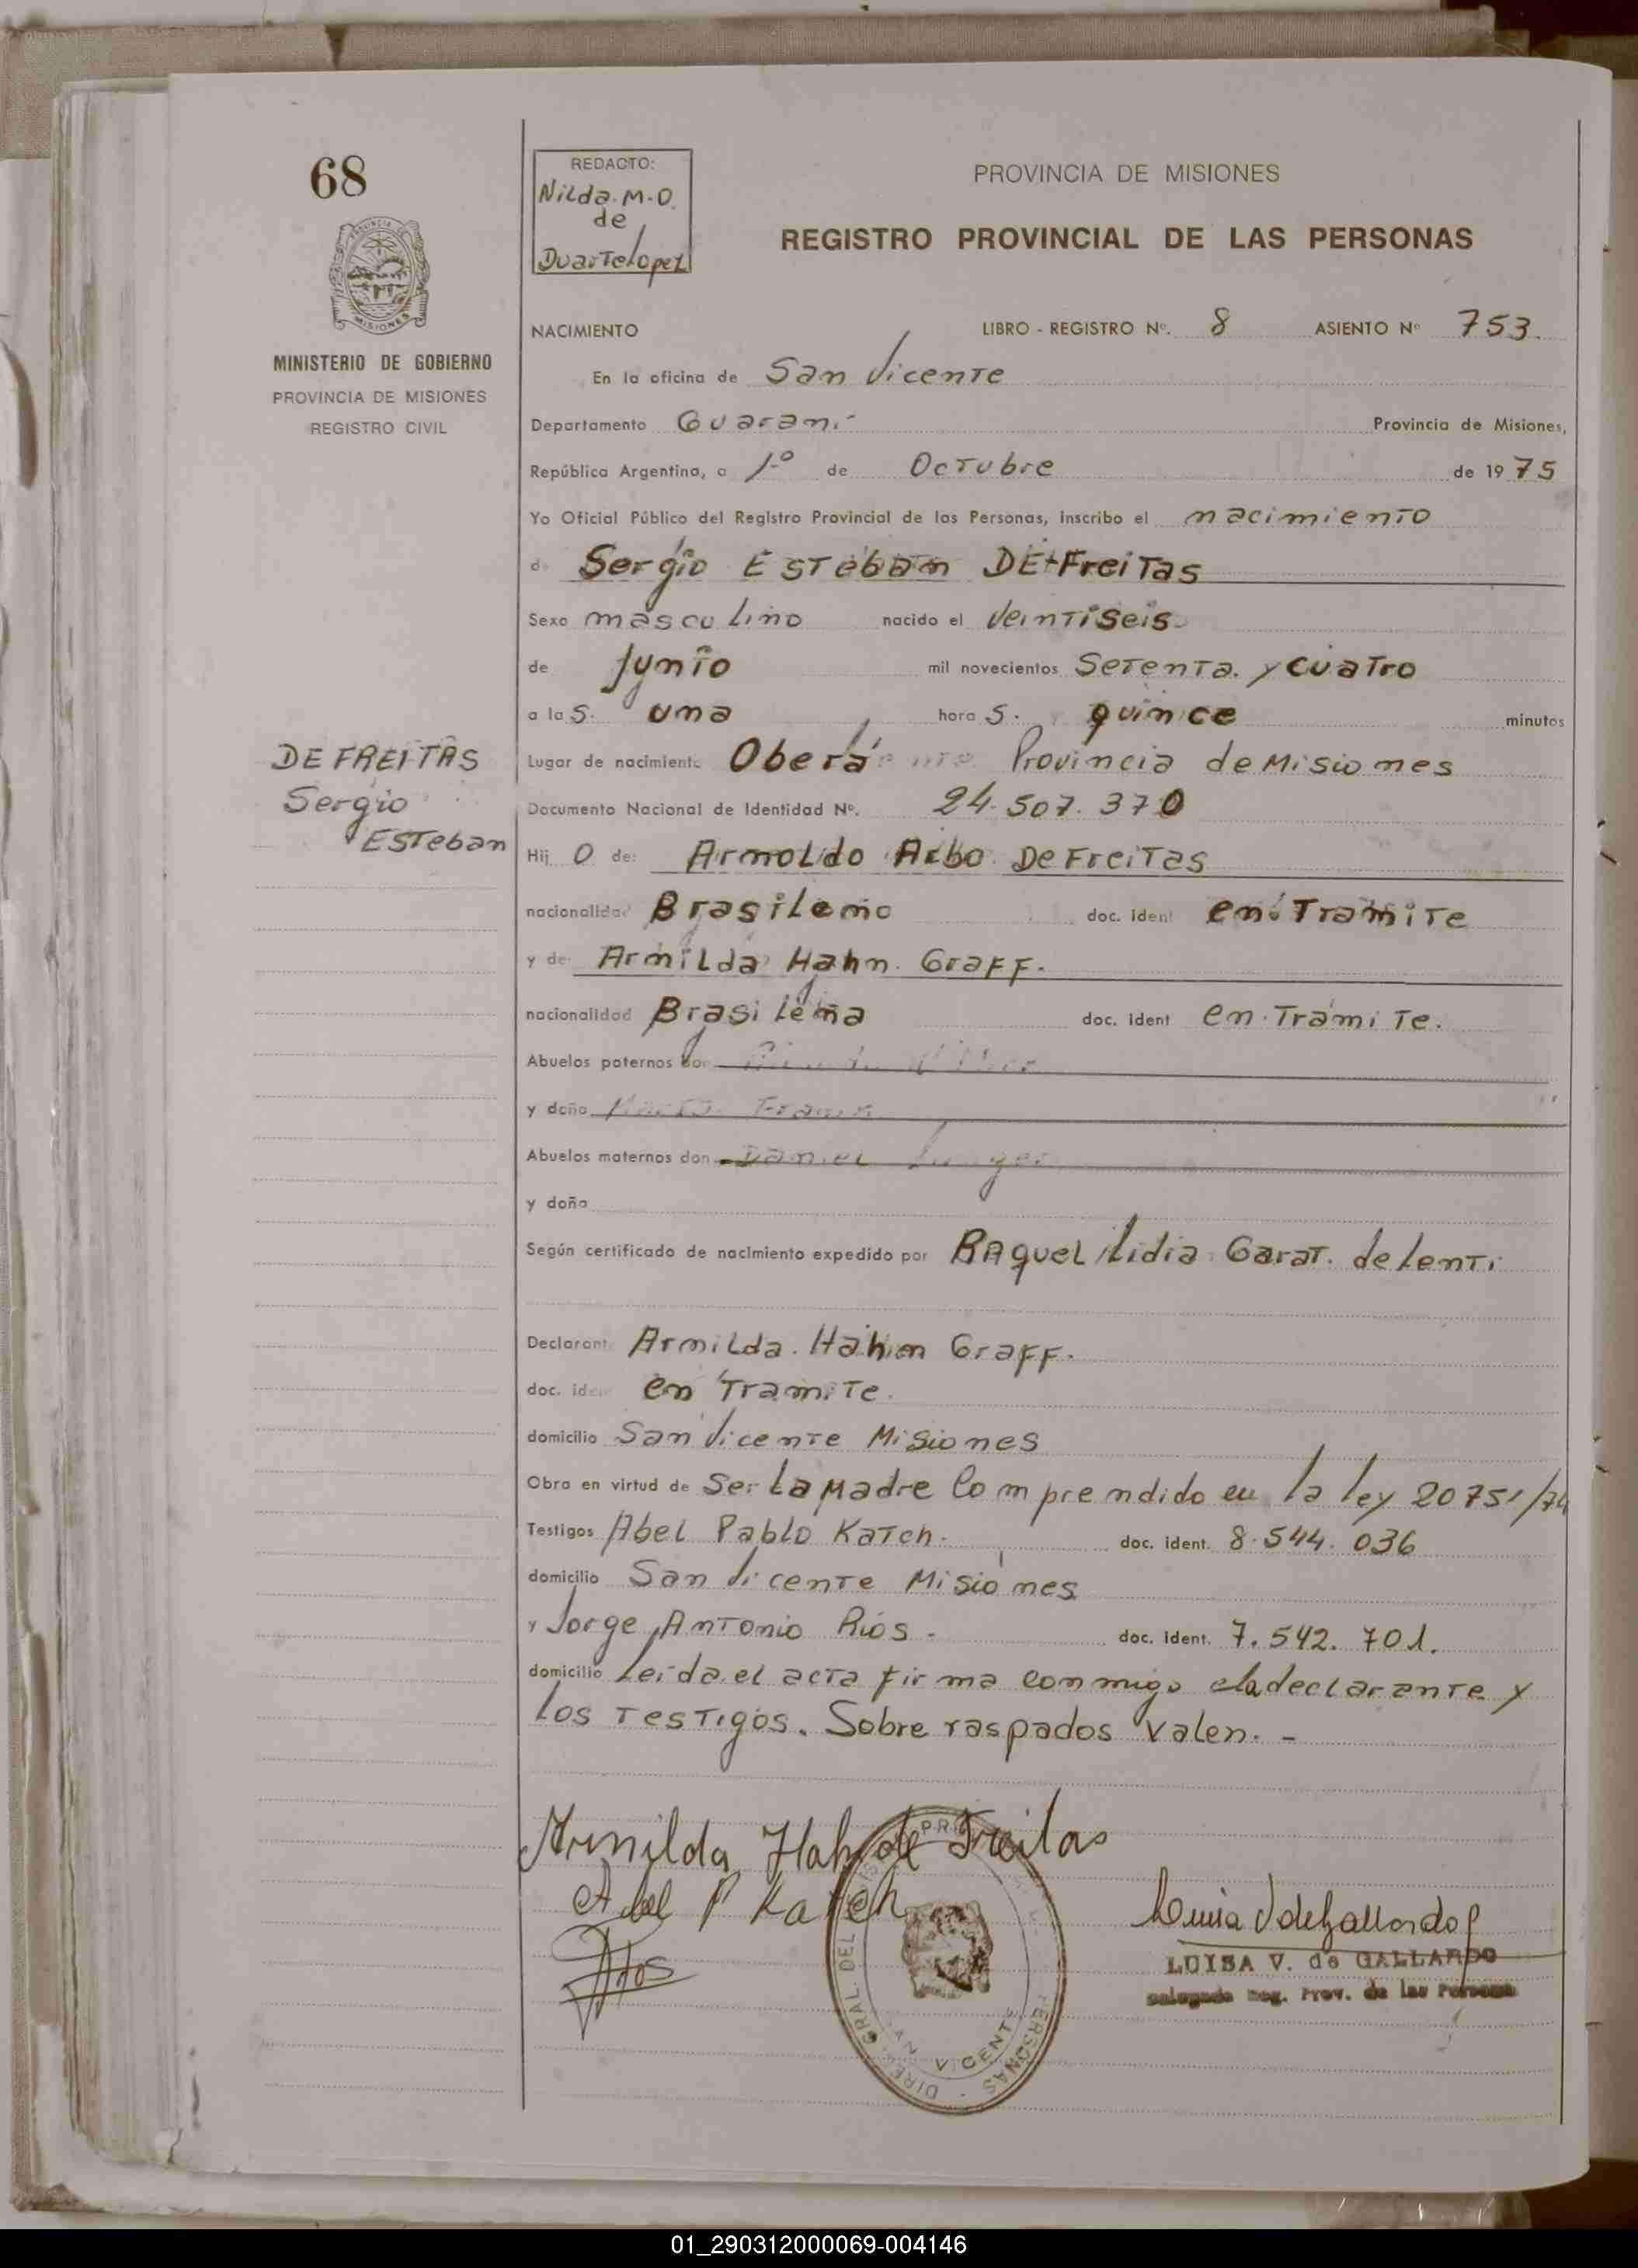 68
REDACTO:
Nilda. M. O.
de
Duarte Lopez
PROVINCIA DE MISIONES
REGISTRO PROVINCIAL DE LAS PERSONAS
PROVINCIA DE
MISIONES
MINISTERIO DE GOBIERNO
PROVINCIA DE MISIONES
REGISTRO CIVIL
NACIMIENTO LIBRO - REGISTRO Nº. 8 ASIENTO Nº 753.
En la oficina de San Vicente
Departamento Guaraní Provincia de Misiones,
República Argentina, a 1º de Octubre de 1975
Yo Oficial Público del Registro Provincial de las Personas, inscribo el nacimiento
de Sergio Esteban DE Freitas
Sexo masculino nacido el veintiseis
de Junio mil novecientos Setenta. y cuatro
a las. una horas. quince minutos
DE FREITAS
Sergio
Esteban
Lugar de nacimiento Oberá Provincia de Misiones
Documento Nacional de Identidad Nº. 24.507.370
Hijo de: Arnoldo Albo De Freitas
nacionalidad Brasileño doc. ident en Tramite
y de Arnilda Hahn Graff.
nacionalidad Brasileña doc. ident en Tramite.
Abuelos paternos don
y doña
Abuelos maternos don Daniel
y doña
Según certificado de nacimiento expedido por Raquel Lidia Garat. de Lenti
Declarante Arnilda. Hahn Graff.
doc. ident en Tramite.
domicilio San Vicente Misiones
Obra en virtud de Ser La Madre Comprendido en la ley 20751/74
Testigos Abel Pablo Katch. doc. ident. 8.544.036
domicilio San Vicente Misiones
y Jorge Antonio Ríos - doc. ident. 7.542.701.
domicilio Leida el acta firma conmigo la declarante y
los Testigos. Sobre raspados valen. -
Arnilda Hahn de Freitas
Abel P Katch
Ríos
DIREC. GRAL. DEL PERSONAS
SAN VICENTE
LUISA V. de GALLARDO
Delegada Reg. Prov. de las Personas
01_290312000069-004146